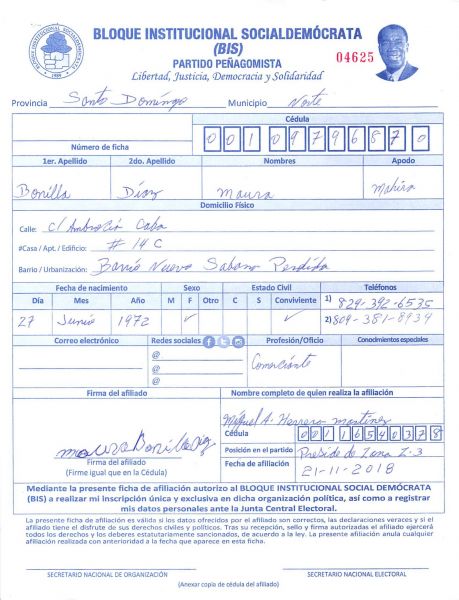 BLOQUE INSTITUCIONAL SOCIALDEMÓCRATA
BLOQUE INSTITUCIONAL SOCIALDEMÓCRATA
(BIS)
PARTIDO PEÑAGOMISTA
Libertad, Justicia, Democracia y Solidaridad
04625
Provincia Santo Domingo Municipio Norte
Cédula
Número de ficha 0 0 1 0 9 7 9 6 8 7 0
1er. Apellido 2do. Apellido Nombres Apodo
Bonilla Díaz Maura
Domicilio Físico
Calle: c/ Ambrocio
#Casa / Apt. / Edificio: # 14 C
Barrio / Urbanización: Barrio Nuevo Sabana Perdida
Fecha de nacimiento Sexo Estado Civil Teléfonos
Día Mes Año M F Otro C S Conviviente 1) 829-392-6535
27 Junio 1972 ✓ ✓ 2) 809-381-8939
Correo electrónico Redes sociales Profesión/Oficio Conocimientos especiales
@ Comerciante
@
@
Firma del afiliado Nombre completo de quien realiza la afiliación
Miguel A. Herrera Martinez
Cédula
0 0 1 1 6 5 4 0 3 7 8
Maura Bonilla Díaz
Posición en el partido Preside de Zona Z-3
Firma del afiliado
(Firme igual que en la Cédula)
Fecha de afiliación 21-11-2018
Mediante la presente ficha de afiliación autorizo al BLOQUE INSTITUCIONAL SOCIAL DEMÓCRATA
(BIS) a realizar mi inscripción única y exclusiva en dicha organización política, así como a registrar
mis datos personales ante la Junta Central Electoral.
La presente ficha de afiliación es válida si los datos ofrecidos por el afiliado son correctos, las declaraciones veraces y si el
afiliado tiene el disfrute de sus derechos civiles y políticos. Tras su recepción, sello y firma autorizadas el afiliado ejercerá
todos los derechos y los deberes estatutariamente sancionados, de acuerdo a la ley. La presente afiliación anula cualquier
afiliación realizada con anterioridad a la fecha que aparece en esta ficha.
SECRETARIO NACIONAL DE ORGANIZACIÓN SECRETARIO NACIONAL ELECTORAL
(Anexar copia de cédula del afiliado)